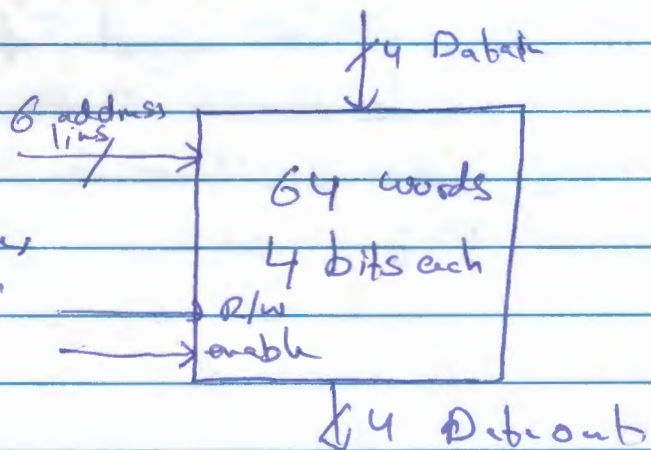 4 Datain
6 address
lines
64 words
4 bits each
R/W
enable
4 Dataout